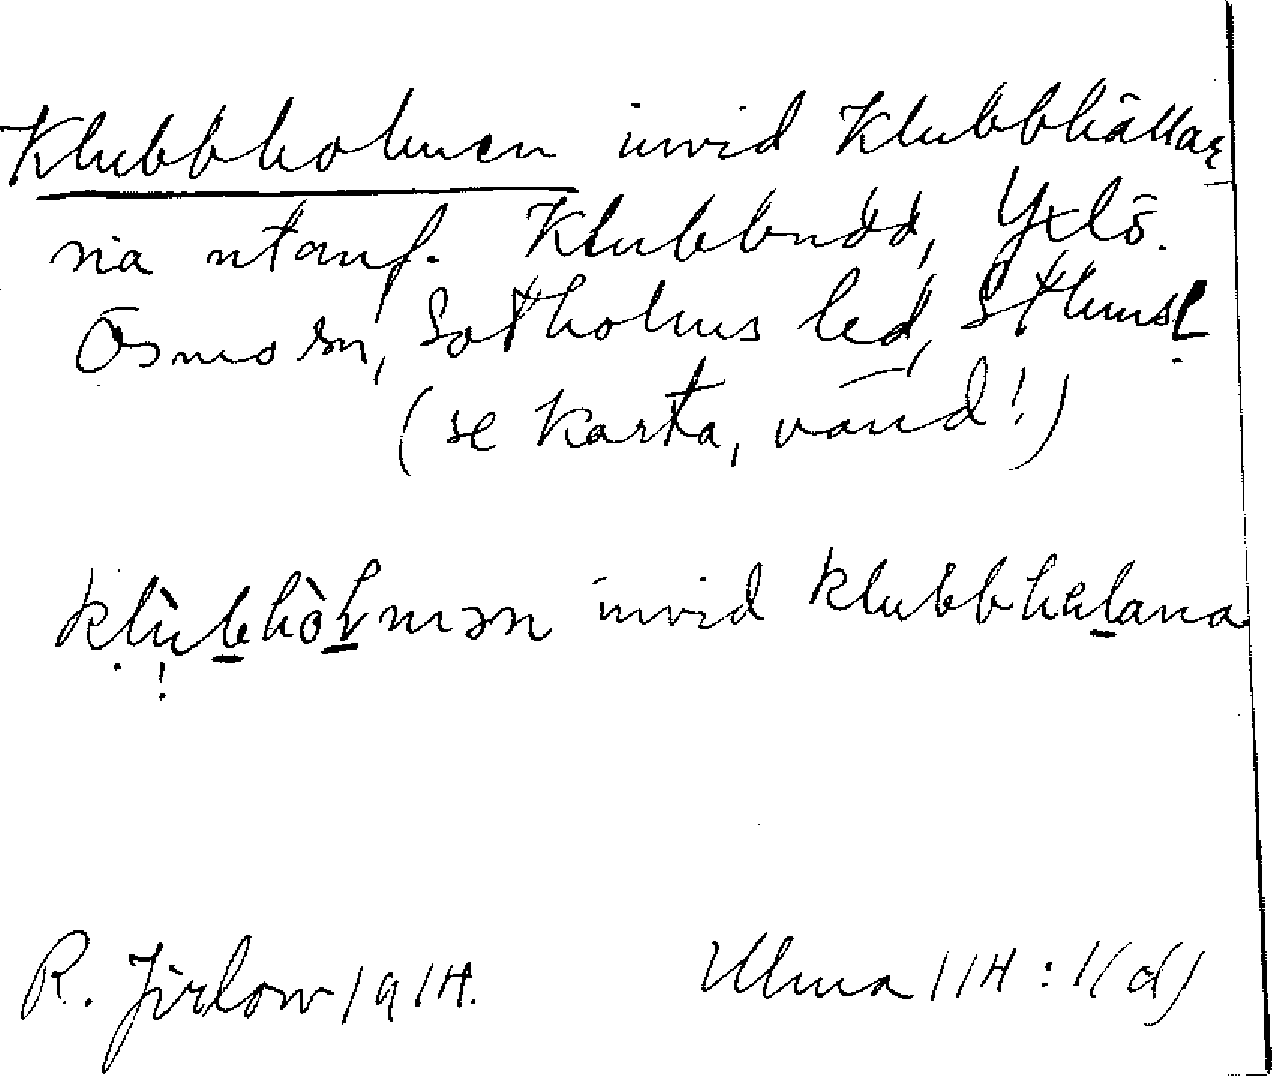 Klubbholmen invid Klubbhällar
na utanf. Klubbudd, Yxlö.
Ösmo sn, Sotholms led, Sthmsl
(se karta, vänd!)
klùbhòlmən invid klubbhelana
R. Jirlow 1914. Ulma 114:1(d)